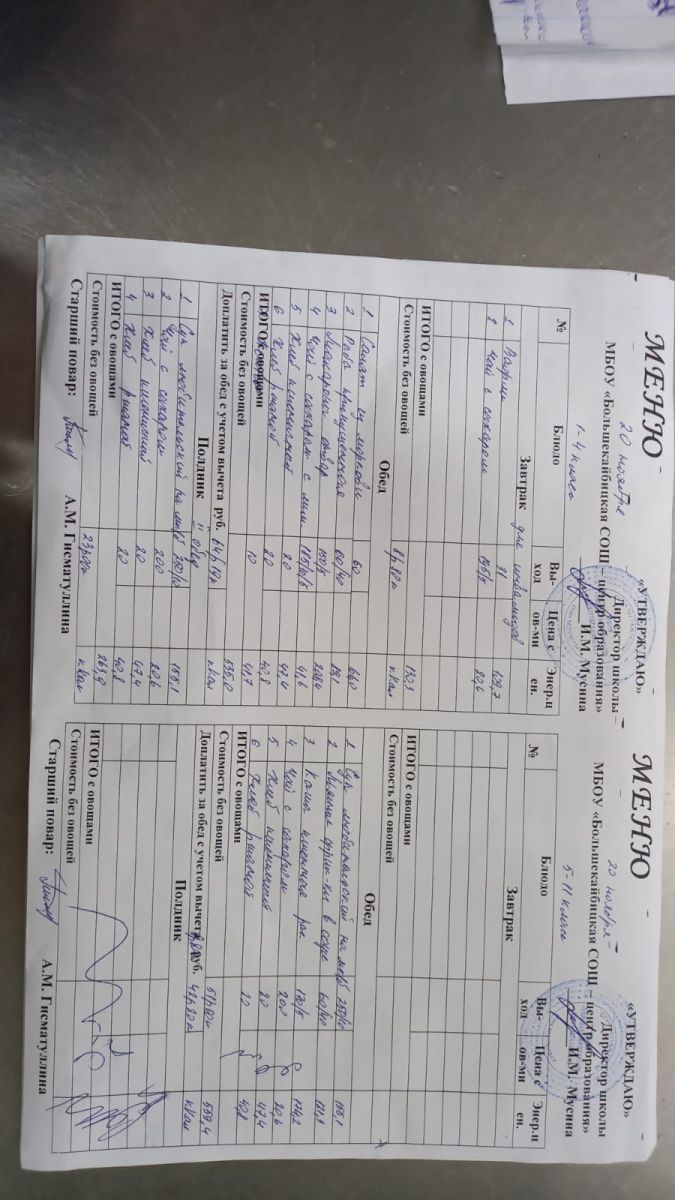 МЕНЮ
«УТВЕРЖДАЮ»
Директор школы –
МБОУ «Большекайбицкая СОШ – центр образования»
И.М. Мусина
20 ноября
1-4 класс
№ Блюдо Вы-ход Цена с ов-ми Энер.ц ен.
Завтрак для инвалидов
1 Вафли 31 109,7
2 Чай с сахаром 20,6
ИТОГО с овощами 130,3
Стоимость без овощей 8р80к ккал
Обед
1 Салат из моркови 60
2
3 отвар 150/5
4 Чай с сахаром с лим 41,6
5 Хлеб пшеничный 20 47,4
6 Хлеб ржаной 20 40,8
ИТОГО с овощами 10 41,7
Стоимость без овощей 535,0
Доплатить за обед с учетом вычета руб. 64р19к ккал
Полдник II обед
1 Суп любительский на м/б 250/10 155,1
2 Чай с сахаром 200 20,6
3 Хлеб пшеничный 20 47,4
4 Хлеб ржаной 20 40,8
ИТОГО с овощами 263,9
Стоимость без овощей 23р00к ккал
Старший повар: А.М. Гисматуллина
МЕНЮ
«УТВЕРЖДАЮ»
Директор школы
МБОУ «Большекайбицкая СОШ – центр образования»
И.М. Мусина
20 ноября
5-11 классы
№ Блюдо Вы-ход Цена с ов-ми Энер.ц ен.
Завтрак
ИТОГО с овощами
Стоимость без овощей
Обед
1 Суп любительский на м/б 250/10 155,1
2 в соусе 60/40
3 Каша пшенная рас 170/5 174,2
4 Чай с сахаром 200 20,6
5 Хлеб пшеничный 20 47,4
6 Хлеб ржаной 20 40,8
ИТОГО с овощами
Стоимость без овощей 51р20к 559,4
Доплатить за обед с учетом вычета руб. 42р20к ккал
Полдник
ИТОГО с овощами
Стоимость без овощей
Старший повар: А.М. Гисматуллина